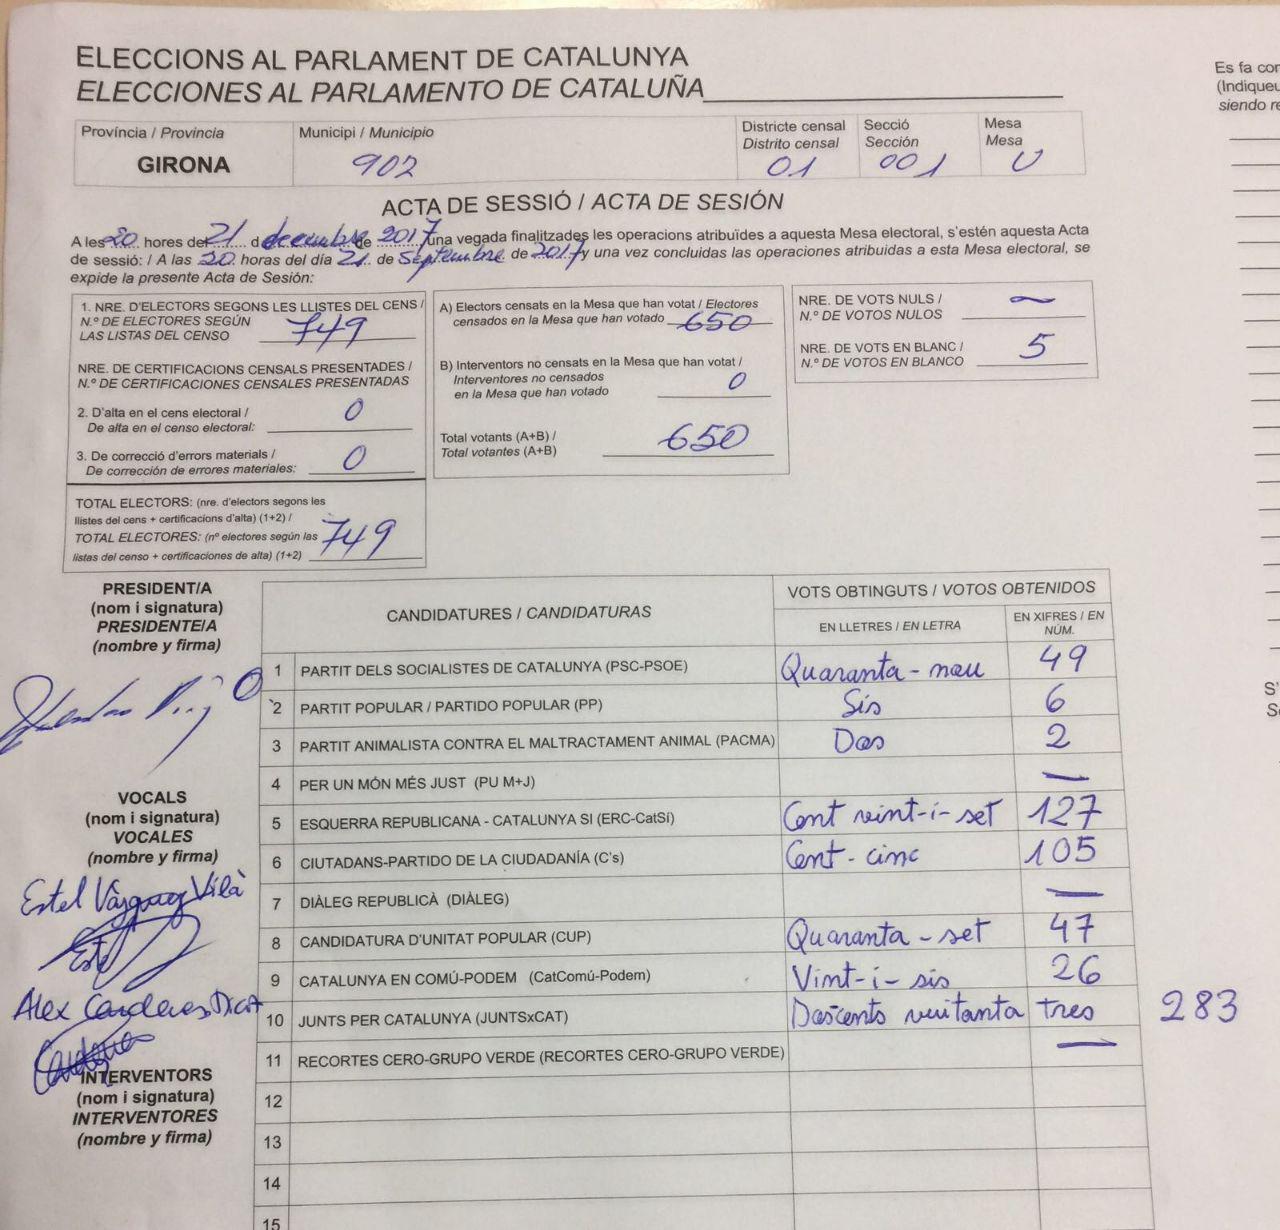 ELECCIONS AL PARLAMENT DE CATALUNYA
ELECCIONES AL PARLAMENTO DE CATALUÑA
Es fa con
(Indiqueu
siendo re
Província / Provincia
GIRONA
Municipi / Municipio
902
Districte censal
Distrito censal
01
Secció
Sección
001
Mesa
Mesa
U
ACTA DE SESSIÓ / ACTA DE SESIÓN
A les 20 hores del 21 d decembre de 2017 una vegada finalitzades les operacions atribuïdes a aquesta Mesa electoral, s'estén aquesta Acta
de sessió: / A las 20 horas del día 21 de Septembre de 2017 y una vez concluidas las operaciones atribuidas a esta Mesa electoral, se
expide la presente Acta de Sesión:
1. NRE. D'ELECTORS SEGONS LES LLISTES DEL CENS /
N.º DE ELECTORES SEGÚN
LAS LISTAS DEL CENSO 749
NRE. DE CERTIFICACIONS CENSALS PRESENTADES /
N.º DE CERTIFICACIONES CENSALES PRESENTADAS
2. D'alta en el cens electoral /
De alta en el censo electoral: 0
3. De correcció d'errors materials /
De corrección de errores materiales: 0
TOTAL ELECTORS: (nre. d'electors segons les
llistes del cens + certificacions d'alta) (1+2) /
TOTAL ELECTORES: (nº electores según las
listas del censo + certificaciones de alta) (1+2) 749
A) Electors censats en la Mesa que han votat / Electores
censados en la Mesa que han votado 650
B) Interventors no censats en la Mesa que han votat /
Interventores no censados
en la Mesa que han votado 0
Total votants (A+B) /
Total votantes (A+B) 650
NRE. DE VOTS NULS /
N.º DE VOTOS NULOS —
NRE. DE VOTS EN BLANC /
N.º DE VOTOS EN BLANCO 5
PRESIDENT/A
(nom i signatura)
PRESIDENTE/A
(nombre y firma)
VOCALS
(nom i signatura)
VOCALES
(nombre y firma)
Estel Vázquez Vilà
Alex
INTERVENTORS
(nom i signatura)
INTERVENTORES
(nombre y firma)
CANDIDATURES / CANDIDATURAS
VOTS OBTINGUTS / VOTOS OBTENIDOS
EN LLETRES / EN LETRA
EN XIFRES / EN
NÚM.
1 PARTIT DELS SOCIALISTES DE CATALUNYA (PSC-PSOE) Quaranta-nou 49
2 PARTIT POPULAR / PARTIDO POPULAR (PP) Sis 6
3 PARTIT ANIMALISTA CONTRA EL MALTRACTAMENT ANIMAL (PACMA) Dos 2
4 PER UN MÓN MÉS JUST (PU M+J) —
5 ESQUERRA REPUBLICANA - CATALUNYA SI (ERC-CatSí) Cent vint-i-set 127
6 CIUTADANS-PARTIDO DE LA CIUDADANÍA (C's) Cent-cinc 105
7 DIÀLEG REPUBLICÀ (DIÀLEG) —
8 CANDIDATURA D'UNITAT POPULAR (CUP) Quaranta-set 47
9 CATALUNYA EN COMÚ-PODEM (CatComú-Podem) Vint-i-sis 26
10 JUNTS PER CATALUNYA (JUNTSxCAT) Doscents vuitanta tres 283
11 RECORTES CERO-GRUPO VERDE (RECORTES CERO-GRUPO VERDE) —
12
13
14
15
S'
Se